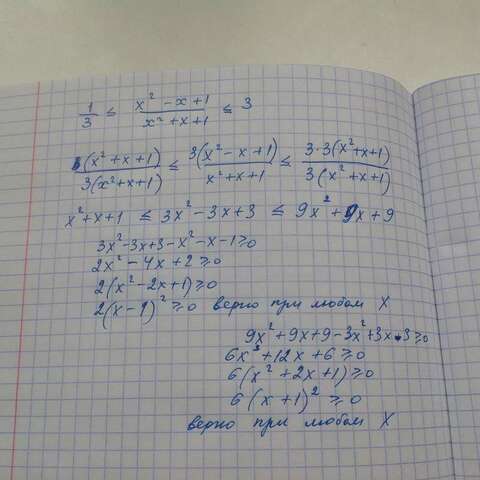 1/3 ≤ (x² - x + 1)/(x² + x + 1) ≤ 3
(x² + x + 1)/3(x² + x + 1) ≤ 3(x² - x + 1)/(x² + x + 1) ≤ 3·3(x² + x + 1)/3(x² + x + 1)
x² + x + 1 ≤ 3x² - 3x + 3 ≤ 9x² + 9x + 9
3x² - 3x + 3 - x² - x - 1 ≥ 0
2x² - 4x + 2 ≥ 0
2(x² - 2x + 1) ≥ 0
2(x - 1)² ≥ 0 верно при любом x
9x² + 9x + 9 - 3x² + 3x - 3 ≥ 0
6x² + 12x + 6 ≥ 0
6(x² + 2x + 1) ≥ 0
6(x + 1)² ≥ 0
верно при любом x